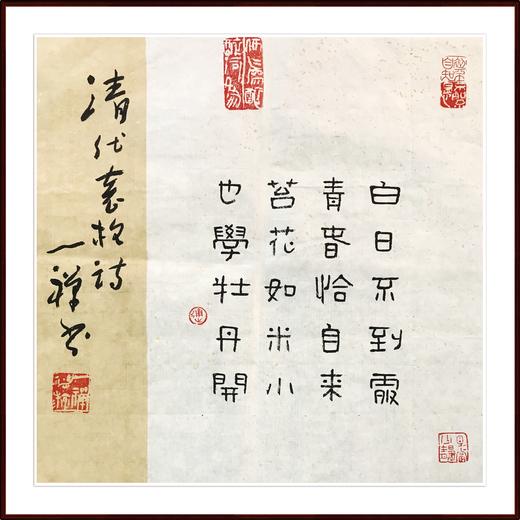 白日不到處
青春恰自来
苔花如米小
也學牡丹開
清代袁枚詩
一禅书